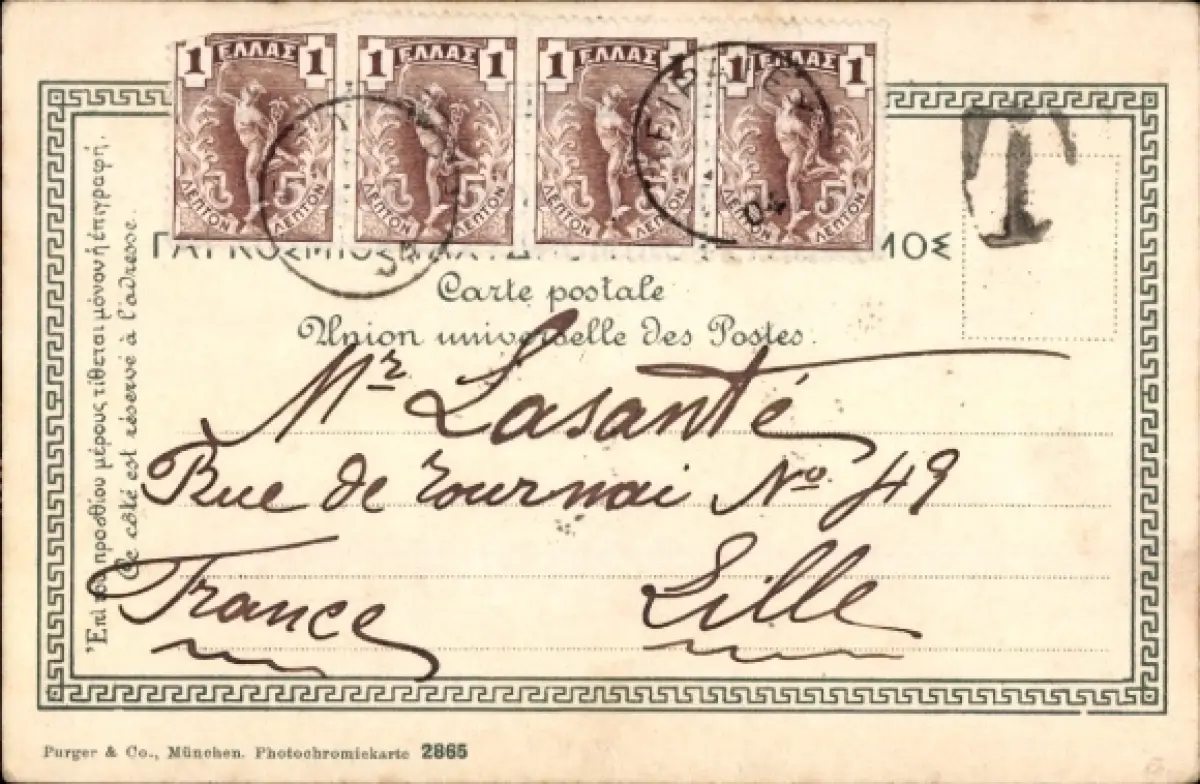 1 ΕΛΛΑΣ 1 1 ΕΛΛΑΣ 1 1 ΕΛΛΑΣ 1 1 1
5 5 5 5 5 5 5 5
ΛΕΠΤΟΝ ΛΕΠΤΟΝ ΛΕΠΤΟΝ ΛΕΠΤΟΝ ΛΕΠΤΟΝ ΛΕΠΤΟΝ ΛΕΠΤΟΝ ΛΕΠΤΟΝ
T
Carte postale
Union universelle des Postes.
Mr Lasanté
Rue de Tournai No. 49
France Lille
Ἐπὶ τοῦ προσθίου μέρους τίθεται μόνον ἡ ἐπιγραφή.
Ce côté est réservé à l'adresse.
Purger & Co., München. Photochromiekarte 2865